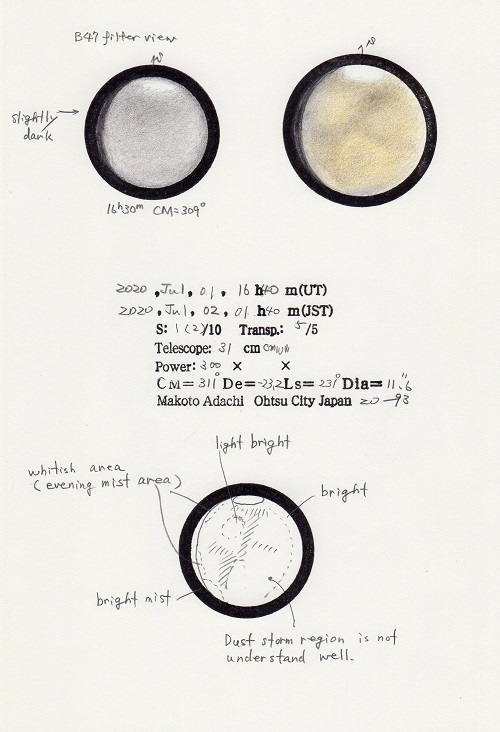 B47 filter view
slightly
dark
16h30m CM=309°
2020 , Jul , 01 , 16 h40 m(UT)
2020 , Jul , 02 , 01 h40 m(JST)
S: 1(2)/10 Transp.: 5/5
Telescope: 31 cm
Power: 300 × ×
CM= 311° De= -23.2 Ls= 231° Dia= 11."6
Makoto Adachi Ohtsu City Japan 20-93
light bright
whitish area
(evening mist area)
bright
bright mist
Dust storm region is not
understand well.